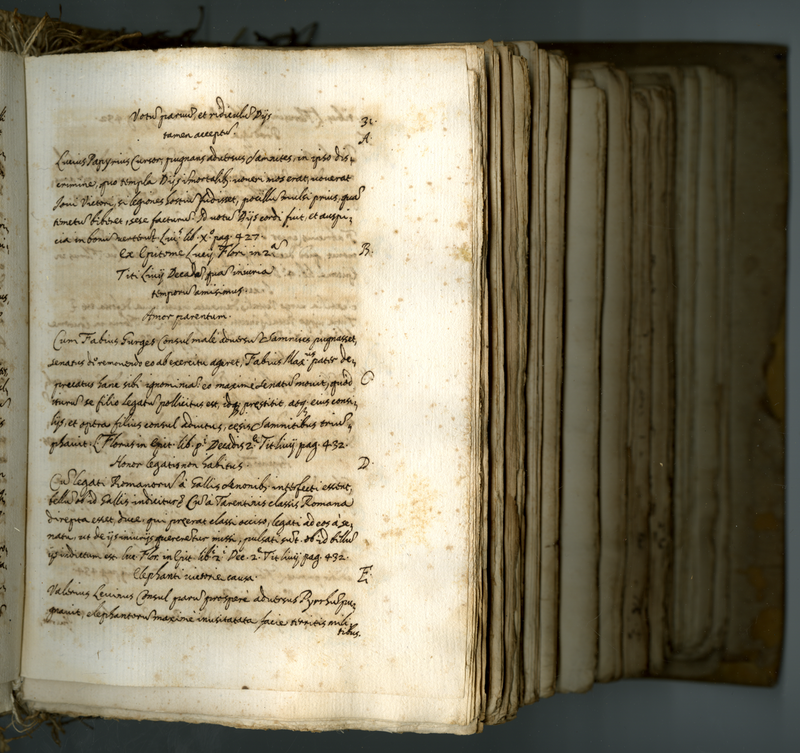 Votũ paruũ, et ridiculũ Dijs
tamen acceptũ.
31.
A.
Lucius Papyrius Cursor, pugnans aduersus Samnites, in ipso dis,
crimine, quo templa Dijs imortalib; uoueri mos erat, uouerat
Ioui Victori, si legiones hostiũ fudisset, pocillũ mulsi prius, quã
temetũ biberet, sese facturũ. Id uotũ Dijs cordi fuit, et auspi,
cia in bonũ uerterũt. Liu.s lib. X.o pag. 427
Ex Epitome Lucij Flori in 2.ã
B.
Titi Liuij Decadẽ, quã iniuria
temporũ amisimus.
Amor parentum.
Cum Fabius Gurges Consul male aduersũ Samnites pugnasset,
senatus de remouendo eo ab exercitu ageret, Fabius Max.us pater de,
precatus hanc sibi ignominiã eo maxime senatũ mouit, quod
C
iturũ se filio legatũ pollicitus est, idq; prestitit. atq; eius consi,
lijs, et opera filius consul adiutus, cęsis Samnitibus triũ,
phauit. Florus in Epit. lib. p.i Decadis 2.ę Tit Liuij pag. 432.
Honor legatis non habitus.
D.
Cũ legati Romanorũ à Gallis Senonib; interfecti essent,
bellũ ob id Gallis indicitur. Cũ à Tarentinis classis Romana
direpta esset, duce, qui pręerat classi occiso, legati ad eos a se,
natu, ut de ijs iniurijs quererẽtur missi, pulsati sũt. ob id bellũ
ijs indictum est. Luc. Flor. in Epit. lib. 2.i Dec. 2.ę Tit Liuij pag. 432.
Elephanti uictorię causa.
E.
Valerius Leuinus Consul parũ prospere aduersus Pyrrhũ pu,
gnauit, elephantorũ maxime inusitatata facie territis mili,
tibus.